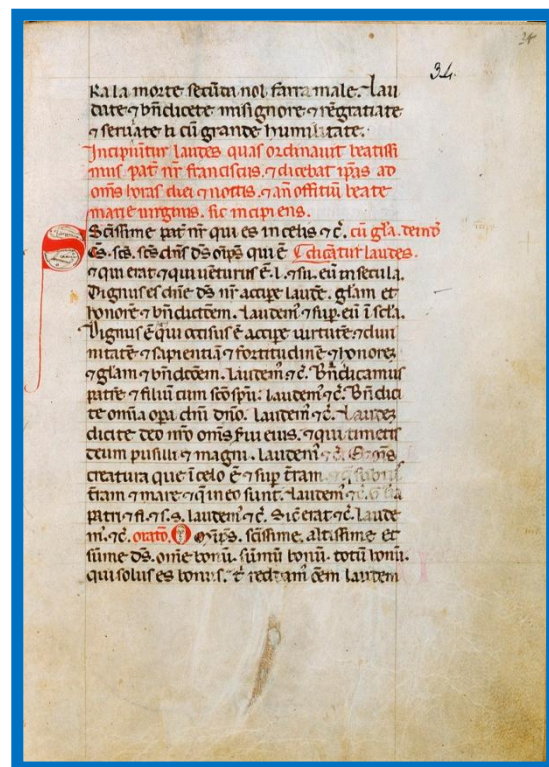 34
34.
ka la morte secūda nol farra male. Lau
date ⁊ bn̄dicete misignore ⁊ rēgratiate
⁊ seruate li cū grande humilitate.
Incipiūtur laudes quas ordinauit beatissi
mus pat̄ nr̄ franciscus. ⁊ dicebat ip̄as ad
om̄s horas diei ⁊ noctis. ⁊ an̄ offitiū beate
marie uirginis. sic incipiens.
Sc̄issime pat̄ nr̄ qui es in celis ⁊ c̄. cū gl̄a. deinō
Sc̄s. sc̄s. sc̄s dn̄s dō̄s om̄ps qui ē dicātur laudes.
⁊ qui erat ⁊ qui uēturus ē. l. ⁊ su. eū in secula.
Dignus es dn̄e dō̄s nr̄ accipe laudē. glam et
honorē ⁊ bn̄dictōem. Laudem̄ ⁊ sup. eū ī scl̄a.
Dignus ē qui occisus ē accipe uirtutē ⁊ diui
nitatē ⁊ sapientiā ⁊ fortitudinē ⁊ honorē
⁊ glam ⁊ bn̄dictōem. Laudem̄ ⁊ c̄. Bn̄dicamus
patrē ⁊ filiū cum sc̄o sp̄u. laudem̄ ⁊ c̄. Bn̄dici
te omnia opa dn̄i dn̄o. laudem̄ ⁊ c̄. Laudem
dicite deo nr̄o om̄s s̄ui eius. ⁊ qui timetis
deum pusilli ⁊ magni. laudem̄ ⁊ c̄. om̄s
creatura que ī celo ē ⁊ sup t̄ram
t̄ram ⁊ mare ⁊ q̄ in eo sunt. Laudem̄ ⁊ c̄. Gl̄ia
patri ⁊ fi. ⁊ s. s. laudem̄ ⁊ c̄. Sic̄ erat ⁊ c̄. laude
m̄. ⁊ c̄. oratō. O Om̄ps. sc̄issime. altissime et
sūme dō̄s. om̄e bonū. sūmū bonū. totū bonū.
qui solus es bonus. t̄ reddam̄ ōem laudem